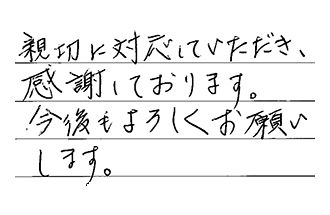 親切に対応していただき、
感謝しております。
今後もよろしくお願い
します。